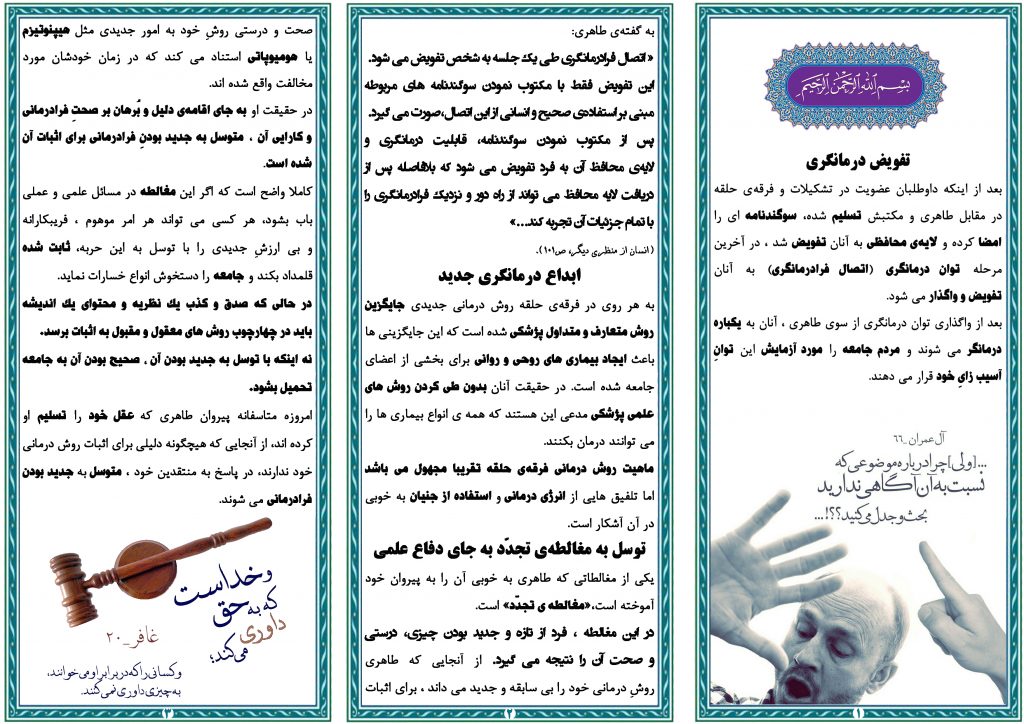 بِسْمِ اللَّهِ الرَّحْمَنِ الرَّحِيمِ
تفویض درمانگری
بعد از اینکه داوطلبان عضویت در تشکیلات و فرقه‌ی حلقه
در مقابل طاهری و مکتبش تسلیم شده، سوگندنامه ای را
امضا کرده و لایه‌ی محافظی به آنان تفویض شد ، در آخرین
مرحله توان درمانگری (اتصال فرادرمانگری) به آنان
تفویض و واگذار می شود.
بعد از واگذاری توان درمانگری از سوی طاهری ، آنان به یکباره
درمانگر می شوند و مردم جامعه را مورد آزمایش این توانِ
آسیب زایِ خود قرار می دهند.
آل‌عمران _۶۶
...[ولی] چرا درباره موضوعی که
نسبت به آن آگاهی ندارید
بحث و جدل می‌کنید؟؟!...
۱
به گفته‌ی طاهری:
« اتصال فرادرمانگری طی یک جلسه به شخص تفویض می شود.
این تفویض فقط با مکتوب نمودن سوگندنامه های مربوطه
مبنی بر استفاده‌ی صحیح و انسانی از این اتصال،صورت می گیرد.
پس از مکتوب نمودن سوگندنامه، قابلیت درمانگری و
لایه‌ی محافظ آن به فرد تفویض می شود که بلافاصله پس از
دریافت لایه محافظ می تواند از راه دور و نزدیک فرادرمانگری را
با تمام جزئیات آن تجربه کند...»
(انسان از منظری دیگر، ص۱۰۱).
ابداع درمانگری جدید
به هر روی در فرقه‌ی حلقه روش درمانی جدیدی جایگزین
روش متعارف و متداول پزشکی شده است که این جایگزینی ها
باعث ایجاد بیماری های روحی و روانی برای بخشی از اعضای
جامعه شده است. در حقیقت آنان بدون طی کردن روش های
علمی پزشکی مدعی این هستند که همه ی انواع بیماری ها را
می توانند درمان بکنند.
ماهیت روش درمانی فرقه‌ی حلقه تقریبا مجهول می باشد
اما تلفیق هایی از انرژی درمانی و استفاده از جنیان به خوبی
در آن آشکار است.
توسل به مغالطه‌ی تجدّد به جای دفاع علمی
یکی از مغالطاتی که طاهری به خوبی آن را به پیروان خود
آموخته است،«مغالطه ی تجدّد» است.
در این مغالطه ، فرد از تازه و جدید بودن چیزی، درستی
و صحت آن را نتیجه می گیرد. از آنجایی که طاهری
روشِ درمانی خود را بی سابقه و جدید می داند ، برای اثبات
۲
صحت و درستی روشِ خود به امور جدیدی مثل هیپنوتیزم
یا هومیوپاتی استناد می کند که در زمان خودشان مورد
مخالفت واقع شده اند.
در حقیقت او به جای اقامه‌ی دلیل و بُرهان بر صحتِ فرادرمانی
و کارایی آن ، متوسل به جدید بودنِ فرادرمانی برای اثبات آن
شده است.
کاملا واضح است که اگر این مغالطه در مسائل علمی و عملی
باب بشود، هر کسی می تواند هر امر موهوم ، فریبکارانه
و بی ارزشِ جدیدی را با توسل به این حربه، ثابت شده
قلمداد بکند و جامعه را دستخوش انواع خسارات نماید.
در حالی که صدق و کذب یك نظریه و محتوای یك اندیشه
باید در چهارچوب روش های معقول و مقبول به اثبات برسد.
نه اینکه با توسل به جدید بودن آن ، صحیح بودن آن به جامعه
تحمیل بشود.
امروزه متاسفانه پیروان طاهری که عقل خود را تسلیم او
کرده اند، از آنجایی که هیچگونه دلیلی برای اثبات روش درمانی
خود ندارند، در پاسخ به منتقدین خود ، متوسل به جدید بودن
فرادرمانی می شوند.
و خداست
که به حق
داوری
می‌کند؛
غافر _۲۰
و کسانی را که در برابر او می‌خوانند،
به چیزی داوری نمی‌کنند.
۳